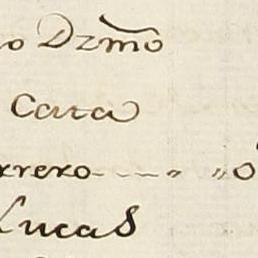 o Dzmo
Cata
rrero - - - " " 0
Lucas